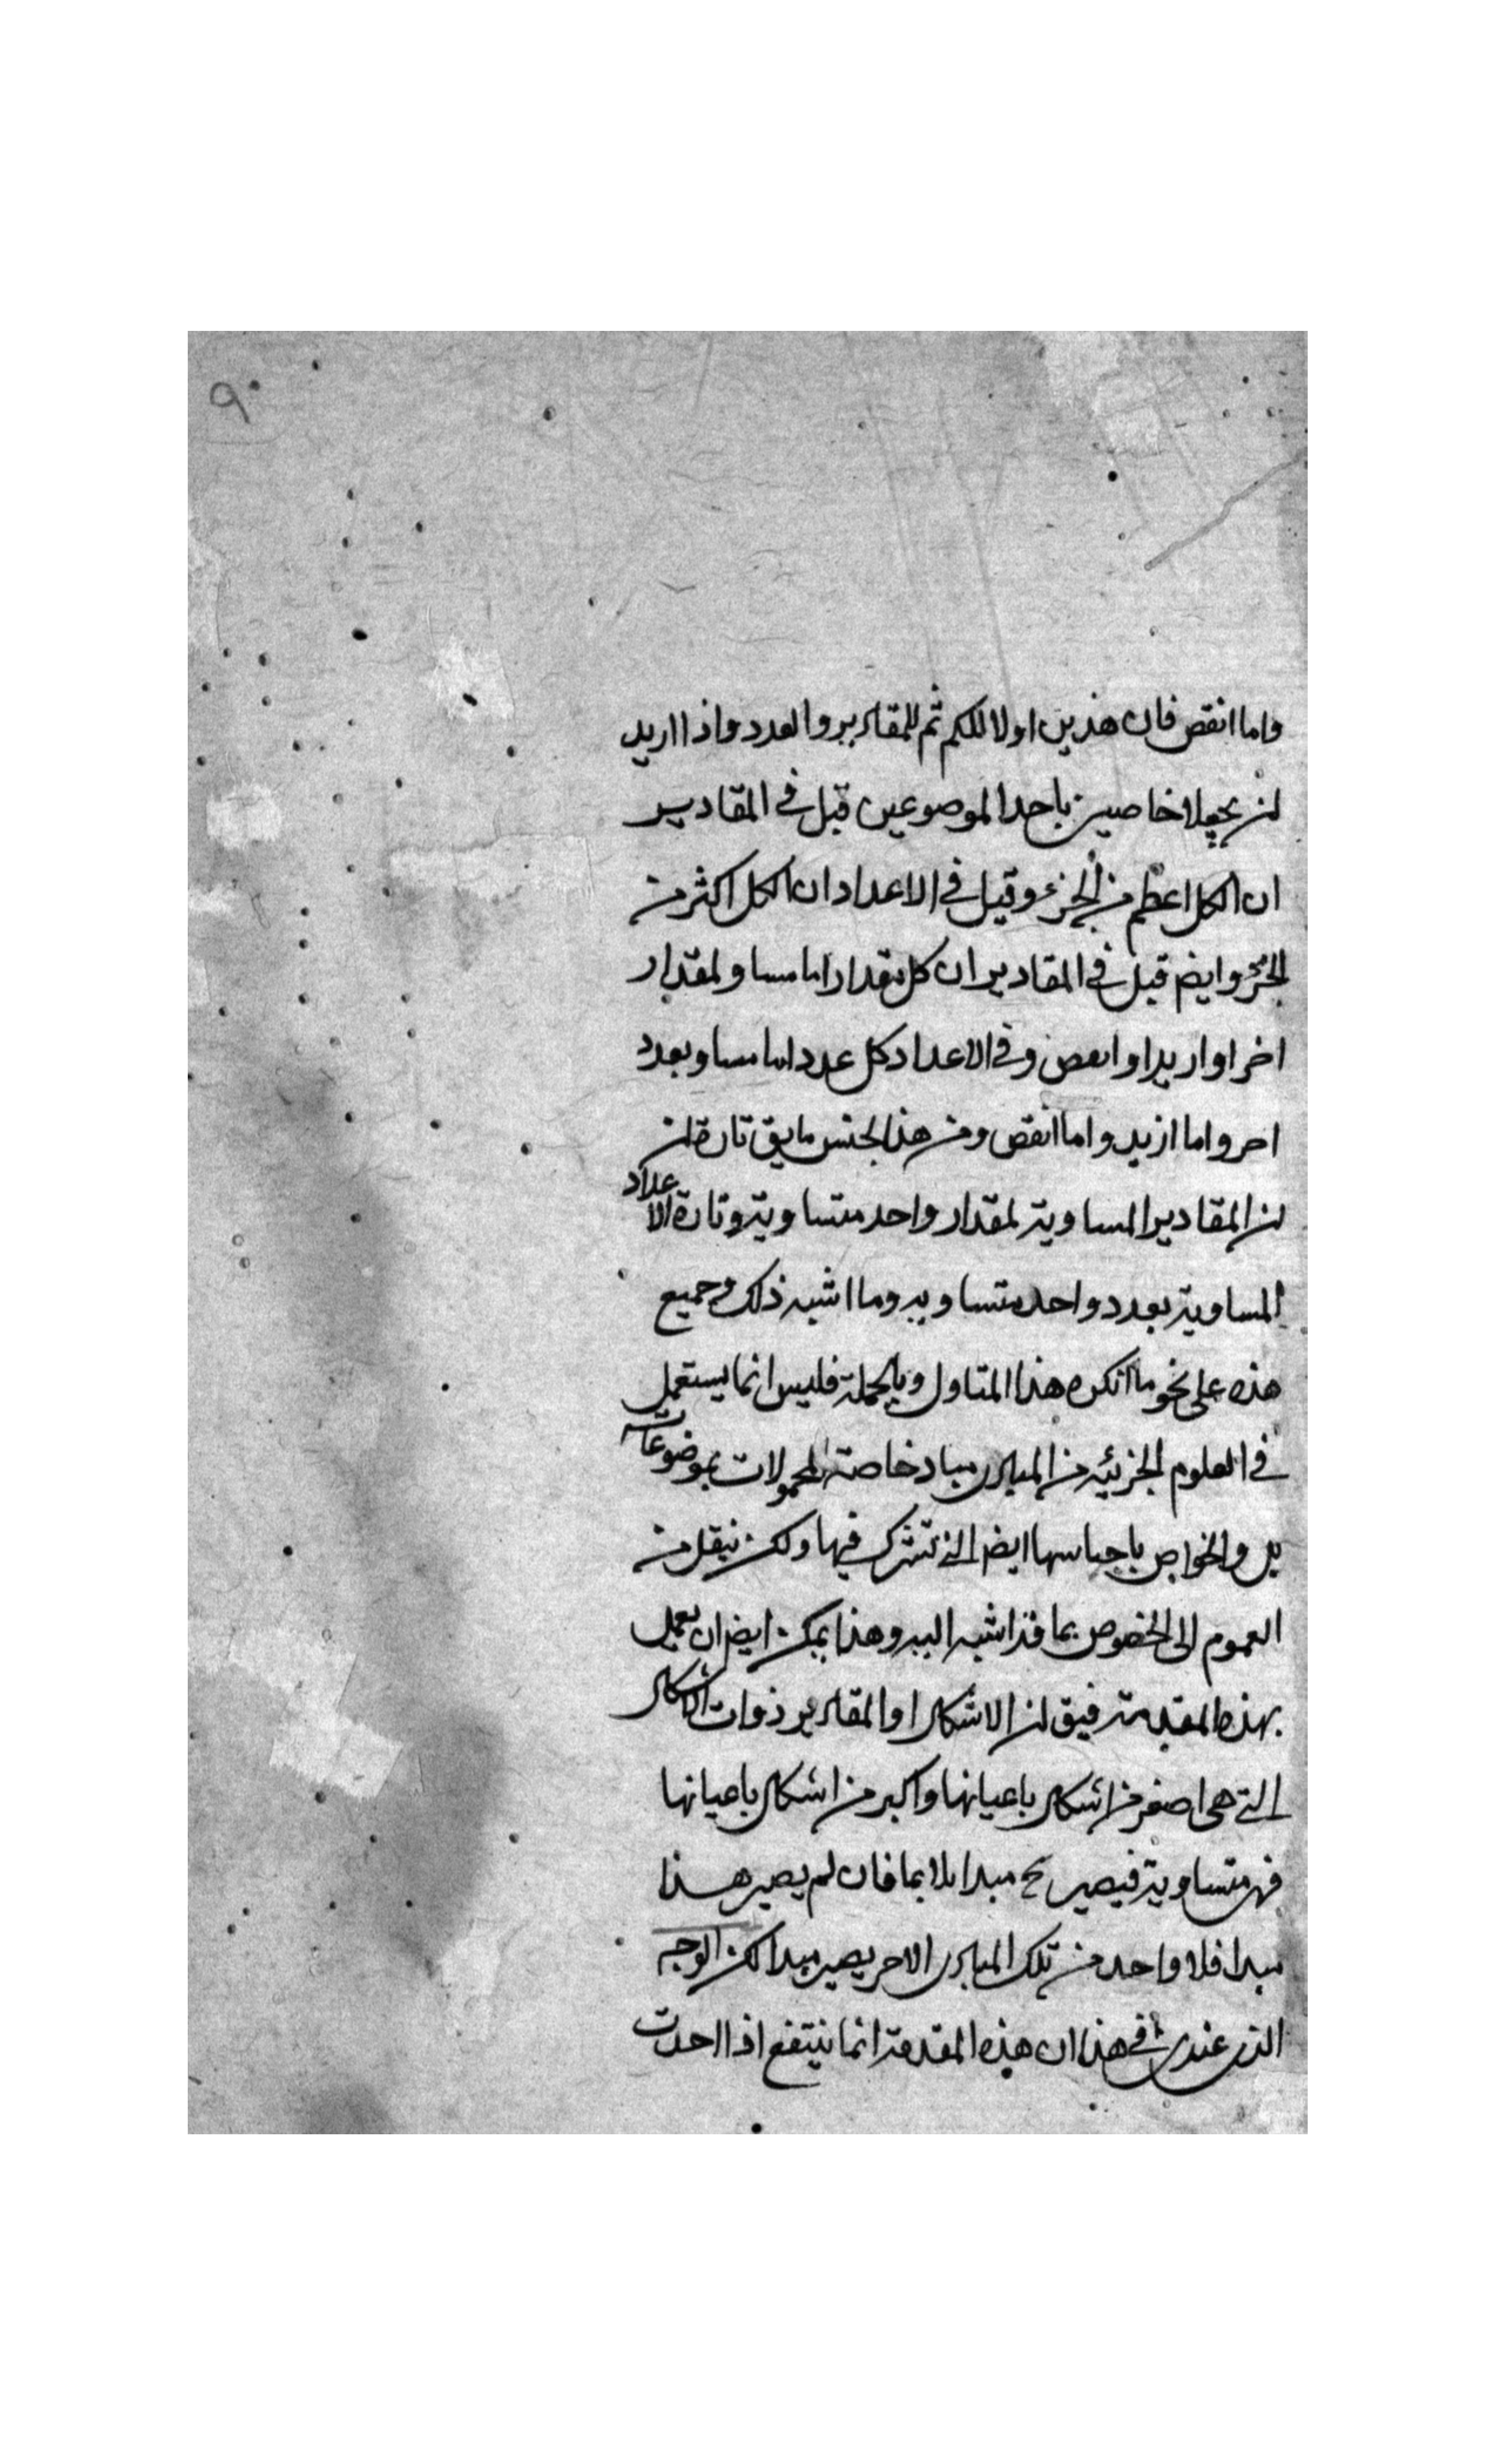 ٩
واما انقص فان هذين اولا للكم ثم للمقادير والعدد واذا اريد
ان يجعلا خاصين باحد الموضوعين قيل في المقادير
ان الكل اعظم من الجزء وقيل في الاعداد ان الكل اكثر من
الجزء وايضم قيل في المقادير ان كل مقدار اما مساو لمقدار
اخر او ازيد او انقص وفي الاعداد كل عدد اما مساو بعدد
اخر واما ازيد واما انقص ومن هذا الجنس ما يق تارة ان
ان المقادير المساوية لمقدار واحد متساوية وتارة الاعداد
المساوية بعدد واحد متساويه وما اشبه ذلك وجميع
هذه على نحو ما انكره هذا المتاول وبالجملة فليس انما يستعمل
في العلوم الجزئيه من المبادى مباد خاصة المحمولات بموضوعات
بل والخواص باجناسها ايضم التي تشترك فيها ولكن نيقل من
العموم الى الخصوص بما قد اشبه اليه وهذا يمكن ايضم ان يعمل
بهذه المقدمة فيق ان الاشكال او المقادير ذوات الاشكال
التي هي اصغر من اشكال باعيانها واكبر من اشكال باعيانها
فهي متساوية فيصير ح مبدا ملايما فان لم يصير هذا
مبدا فلا واحد من تلك المبادى الاخر يصير مبدا لكن الوجه
الذى عندى في هذا ان هذه المقدمة انما ينتفع اذا احدت